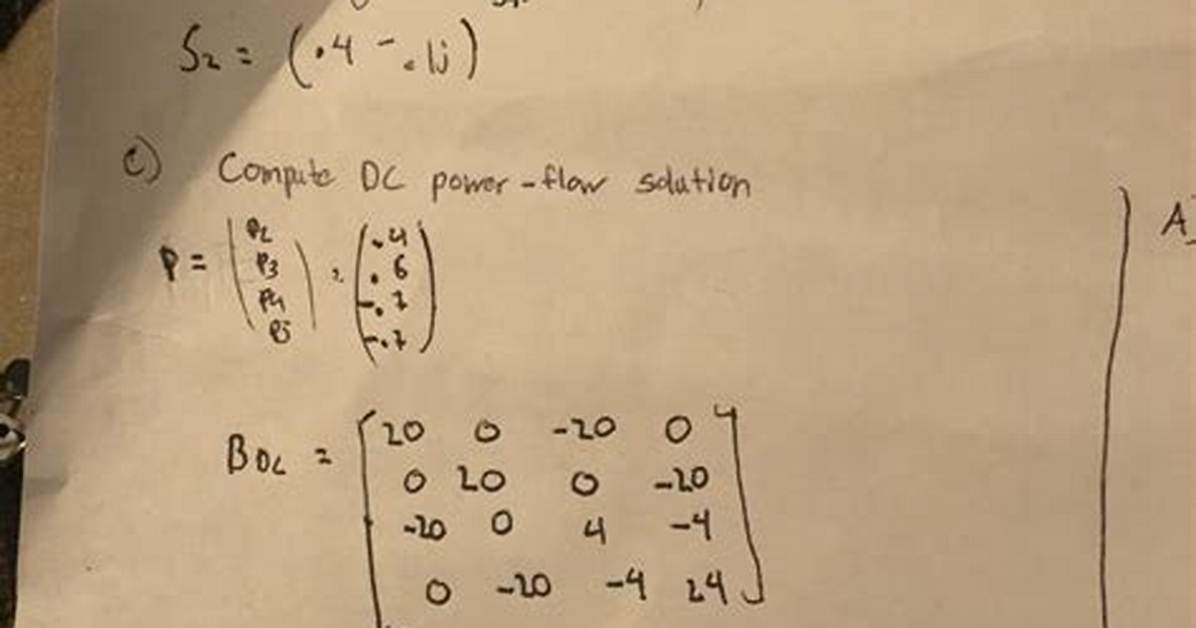 S2 = (.4 - .1j)
c) Compute DC power-flow solution
P = (P2 P3 P4 P5) = (.4 .6 -.7 -.7)
BDC =
20 0 -20 0
0 20 0 -20
-20 0 4 -4
0 -20 -4 24
A